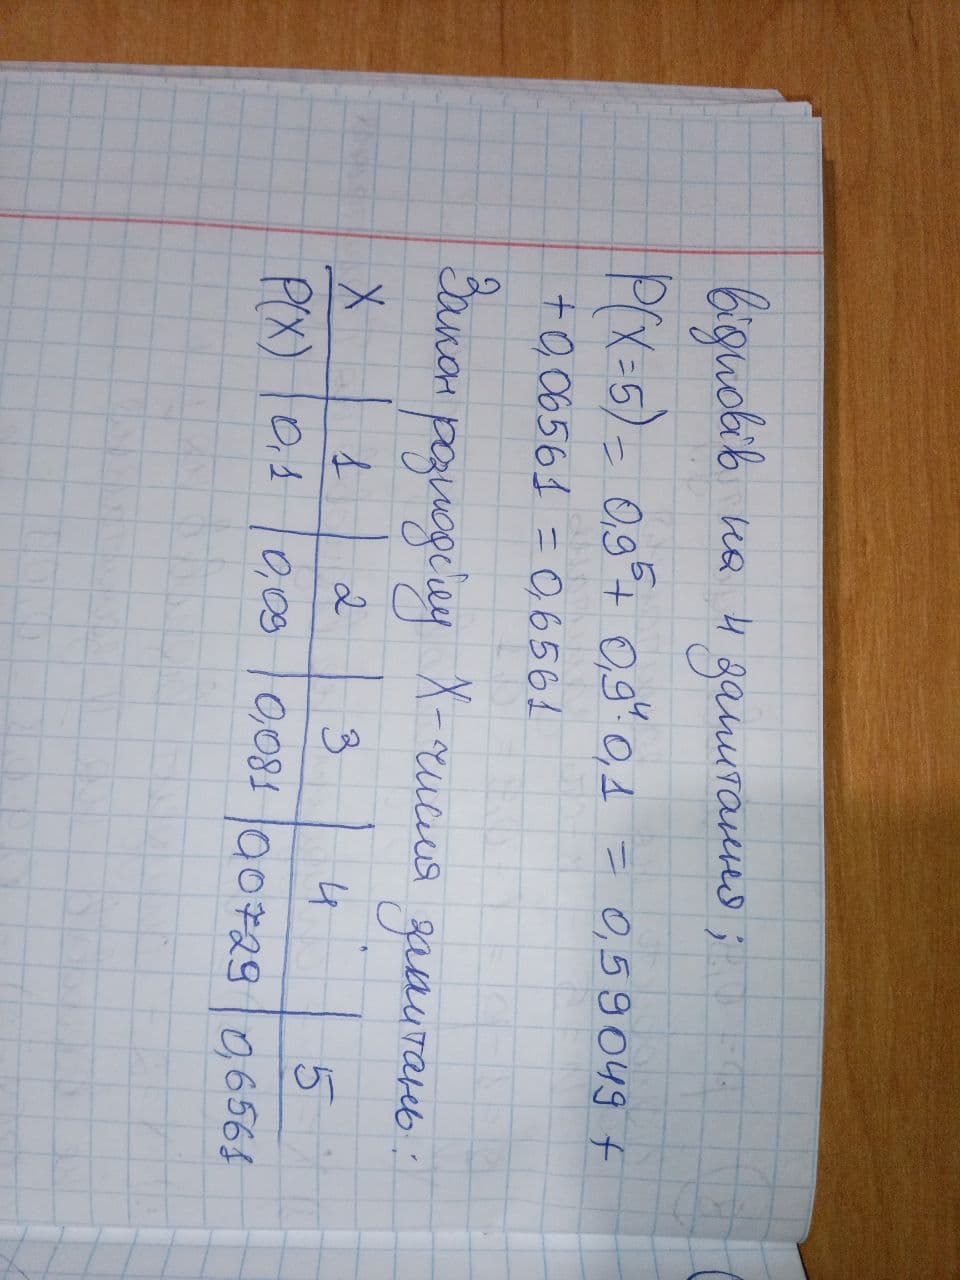 відповів на 4 запитання;
P(X=5) = 0,9⁵ + 0,9⁴·0,1 = 0,59049 +
+ 0,06561 = 0,6561
Закон розподілу X - числа запитань:
X | 1 | 2 | 3 | 4 | 5
P(X) | 0,1 | 0,09 | 0,081 | 0,0729 | 0,6561